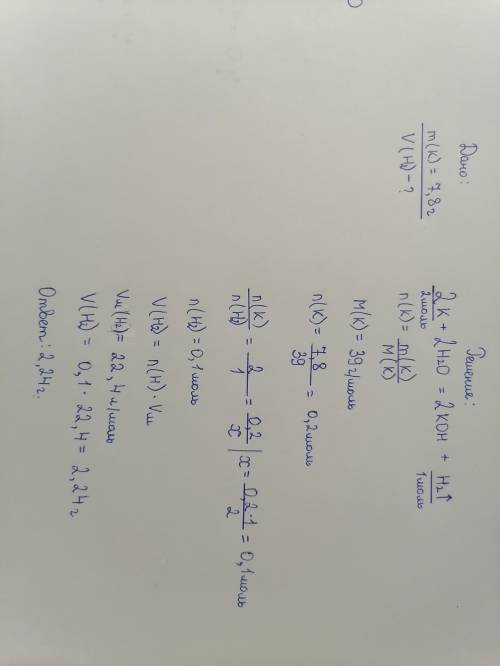 Дано:
m(K) = 7,8г
V(H₂) - ?
Решение:
2K + 2H₂O = 2KOH + H₂↑
2моль 1моль
n(K) = m(K)/M(K)
M(K) = 39г/моль
n(K) = 7,8/39 = 0,2моль
n(K)/n(H₂) = 2/1 = 0,2/x | x = 0,2·1/2 = 0,1моль
n(H₂) = 0,1моль
V(H₂) = n(H) · Vм
Vм(H₂) = 22,4л/моль
V(H₂) = 0,1 · 22,4 = 2,24г
Ответ: 2,24г.